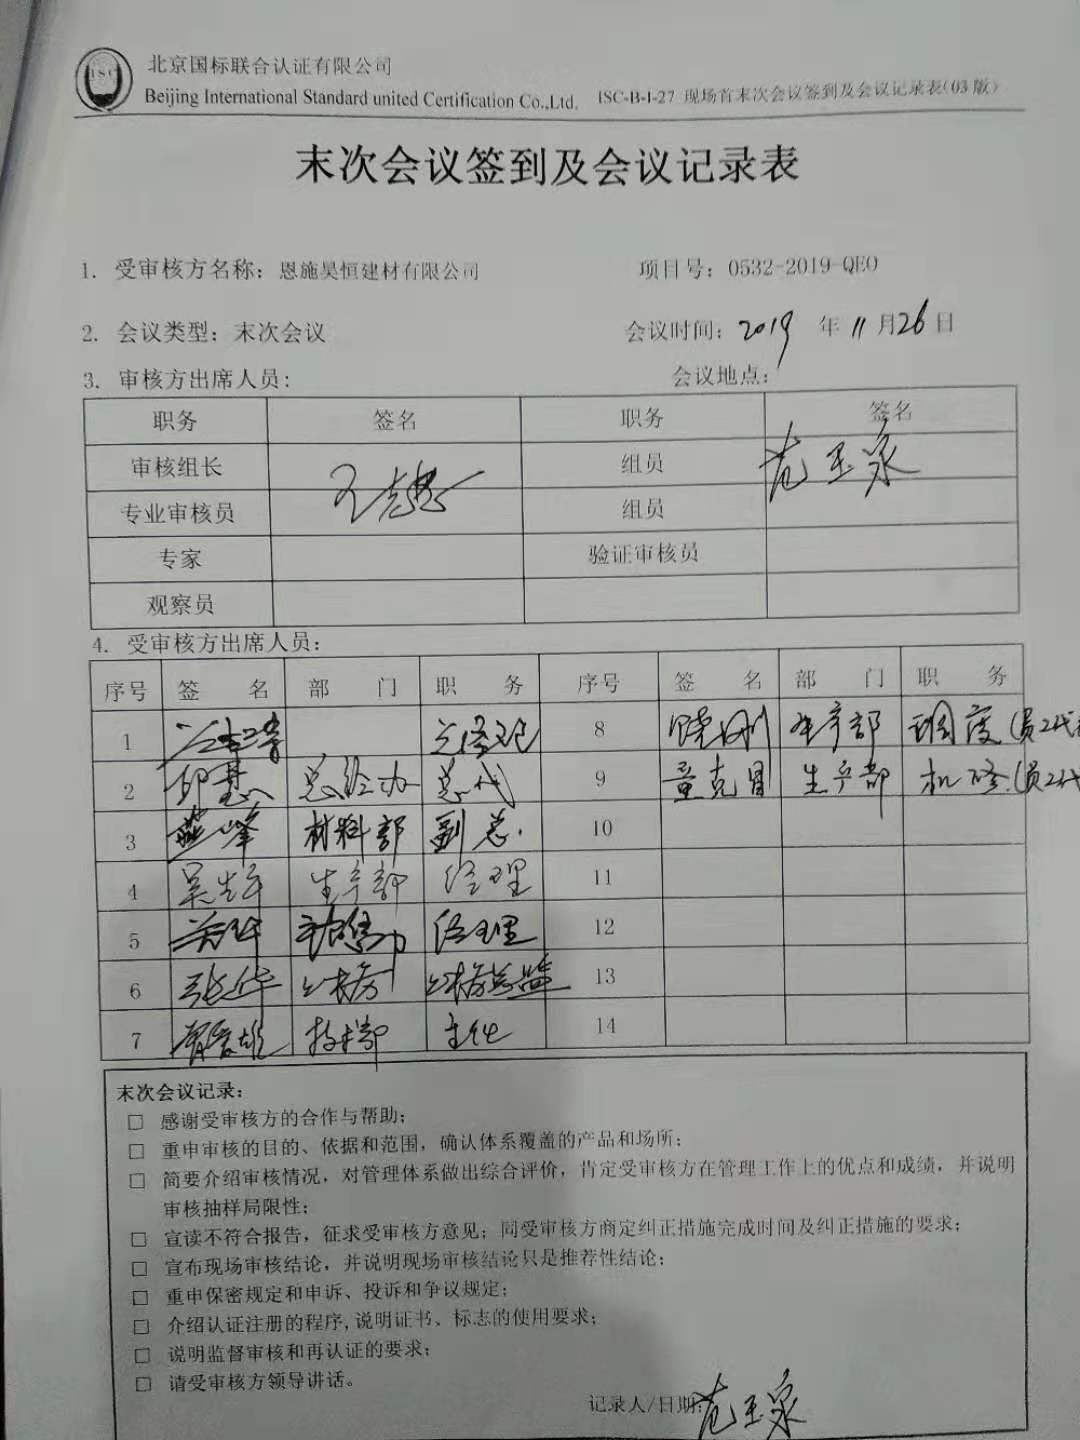 ISC
北京国标联合认证有限公司
Beijing International Standard united Certification Co.,Ltd.
ISC-B-I-27 现场首末次会议签到及会议记录表(03版)
末次会议签到及会议记录表
1. 受审核方名称：恩施昊恒建材有限公司 项目号：0532-2019-QEO
2. 会议类型：末次会议 会议时间：2019年11月26日
3. 审核方出席人员： 会议地点：
职务 签名 职务 签名
审核组长 组员 范玉泉
专业审核员 组员
专家 验证审核员
观察员
4. 受审核方出席人员：
序号 签名 部门 职务 序号 签名 部门 职务
1 8 生产部 调度(员2代
2 邱慧 总经办 总代 9 童克冒 生产部 机修(员2代
3 材料部 副总. 10
4 生产部 经理 11
5 经理 12
6 张华 13
7 技术部 主任 14
末次会议记录：
□ 感谢受审核方的合作与帮助；
□ 重申审核的目的、依据和范围，确认体系覆盖的产品和场所；
□ 简要介绍审核情况，对管理体系做出综合评价，肯定受审核方在管理工作上的优点和成绩，并说明
审核抽样局限性；
□ 宣读不符合报告，征求受审核方意见；同受审核方商定纠正措施完成时间及纠正措施的要求；
□ 宣布现场审核结论，并说明现场审核结论只是推荐性结论；
□ 重申保密规定和申诉、投诉和争议规定；
□ 介绍认证注册的程序,说明证书、标志的使用要求；
□ 说明监督审核和再认证的要求；
□ 请受审核方领导讲话。
记录人/日期：范玉泉